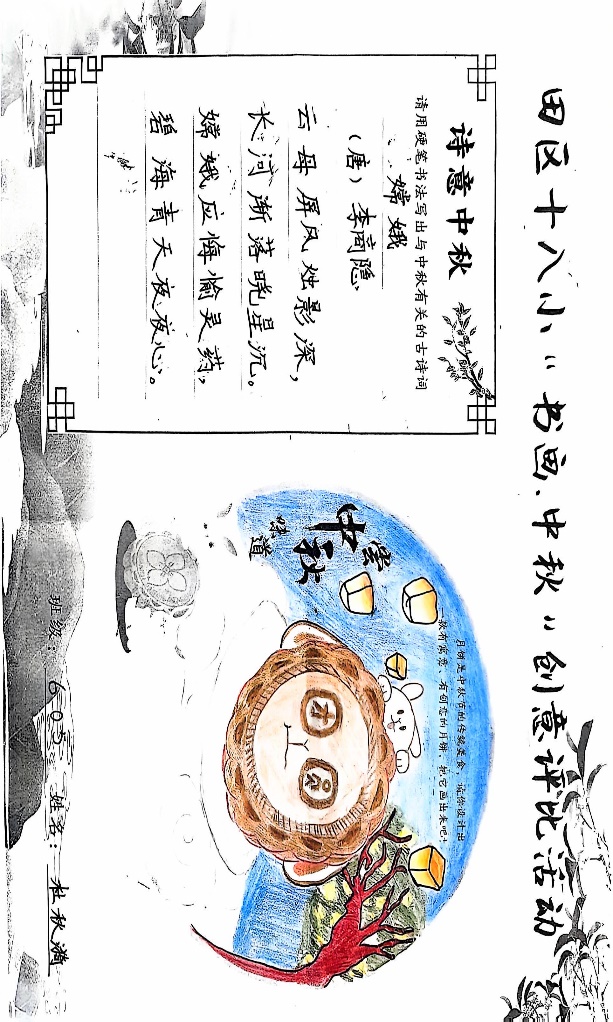 田区十八小“书画、中秋”创意评比活动
诗意中秋
请用硬笔书法写出与中秋有关的古诗词
嫦娥
(唐)李商隐
云母屏风烛影深,
长河渐落晓星沉。
嫦娥应悔偷灵药,
碧海青天夜夜心。
尝中秋味道
月饼是中秋节的传统美食,请你设计出
教有寓意、有创意的月饼,把它画出来吧!
班级:605 姓名:杜秋漪